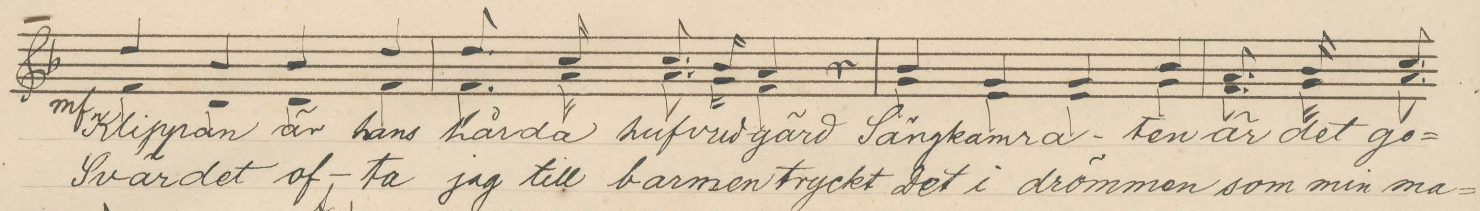 mf
Klippan är hans hårda hufvudgärd Sängkamra - ten är det go=
Svärdet of - ta jag till barmen tryckt Det i drömmen som min ma=